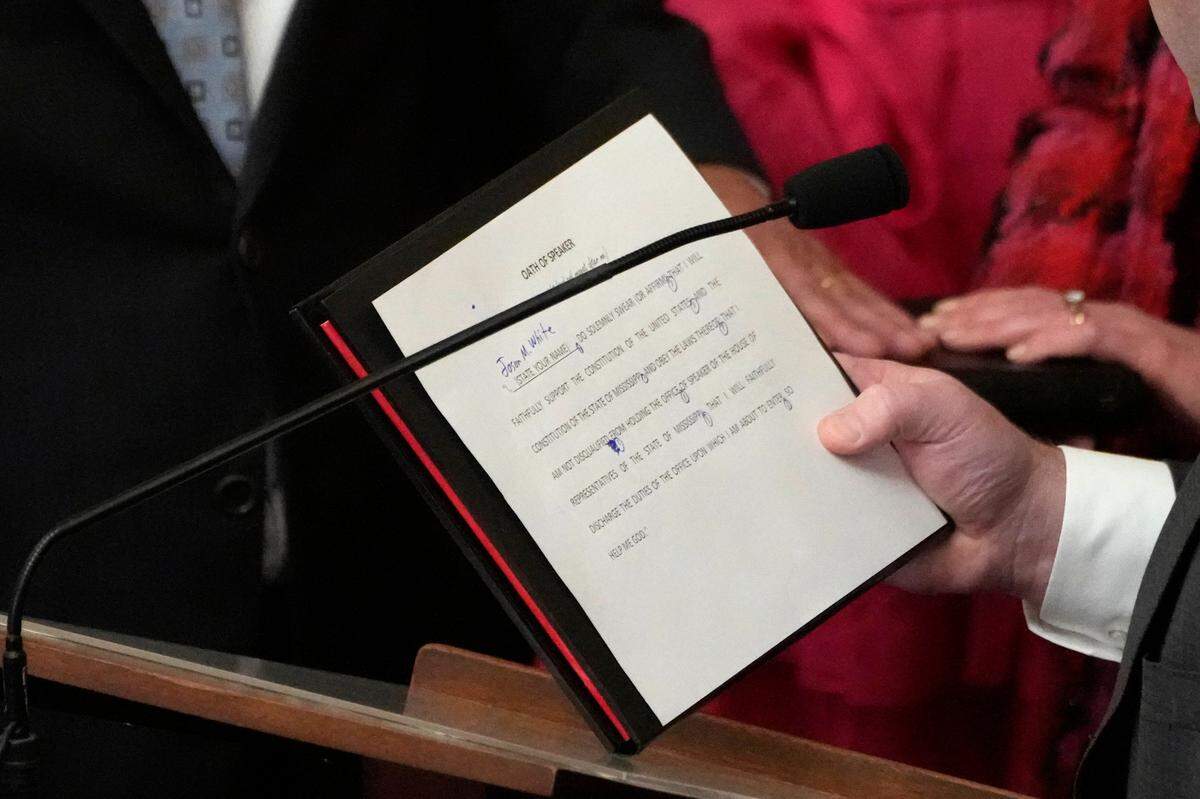 OATH OF SPEAKER
Jason M. White
(STATE YOUR NAME), DO SOLEMNLY SWEAR (OR AFFIRM) THAT I WILL
FAITHFULLY SUPPORT THE CONSTITUTION OF THE UNITED STATES AND THE
CONSTITUTION OF THE STATE OF MISSISSIPPI AND OBEY THE LAWS THEREOF; THAT I
AM NOT DISQUALIFIED FROM HOLDING THE OFFICE OF SPEAKER OF THE HOUSE OF
REPRESENTATIVES OF THE STATE OF MISSISSIPPI; THAT I WILL FAITHFULLY
DISCHARGE THE DUTIES OF THE OFFICE UPON WHICH I AM ABOUT TO ENTER, SO
HELP ME GOD."